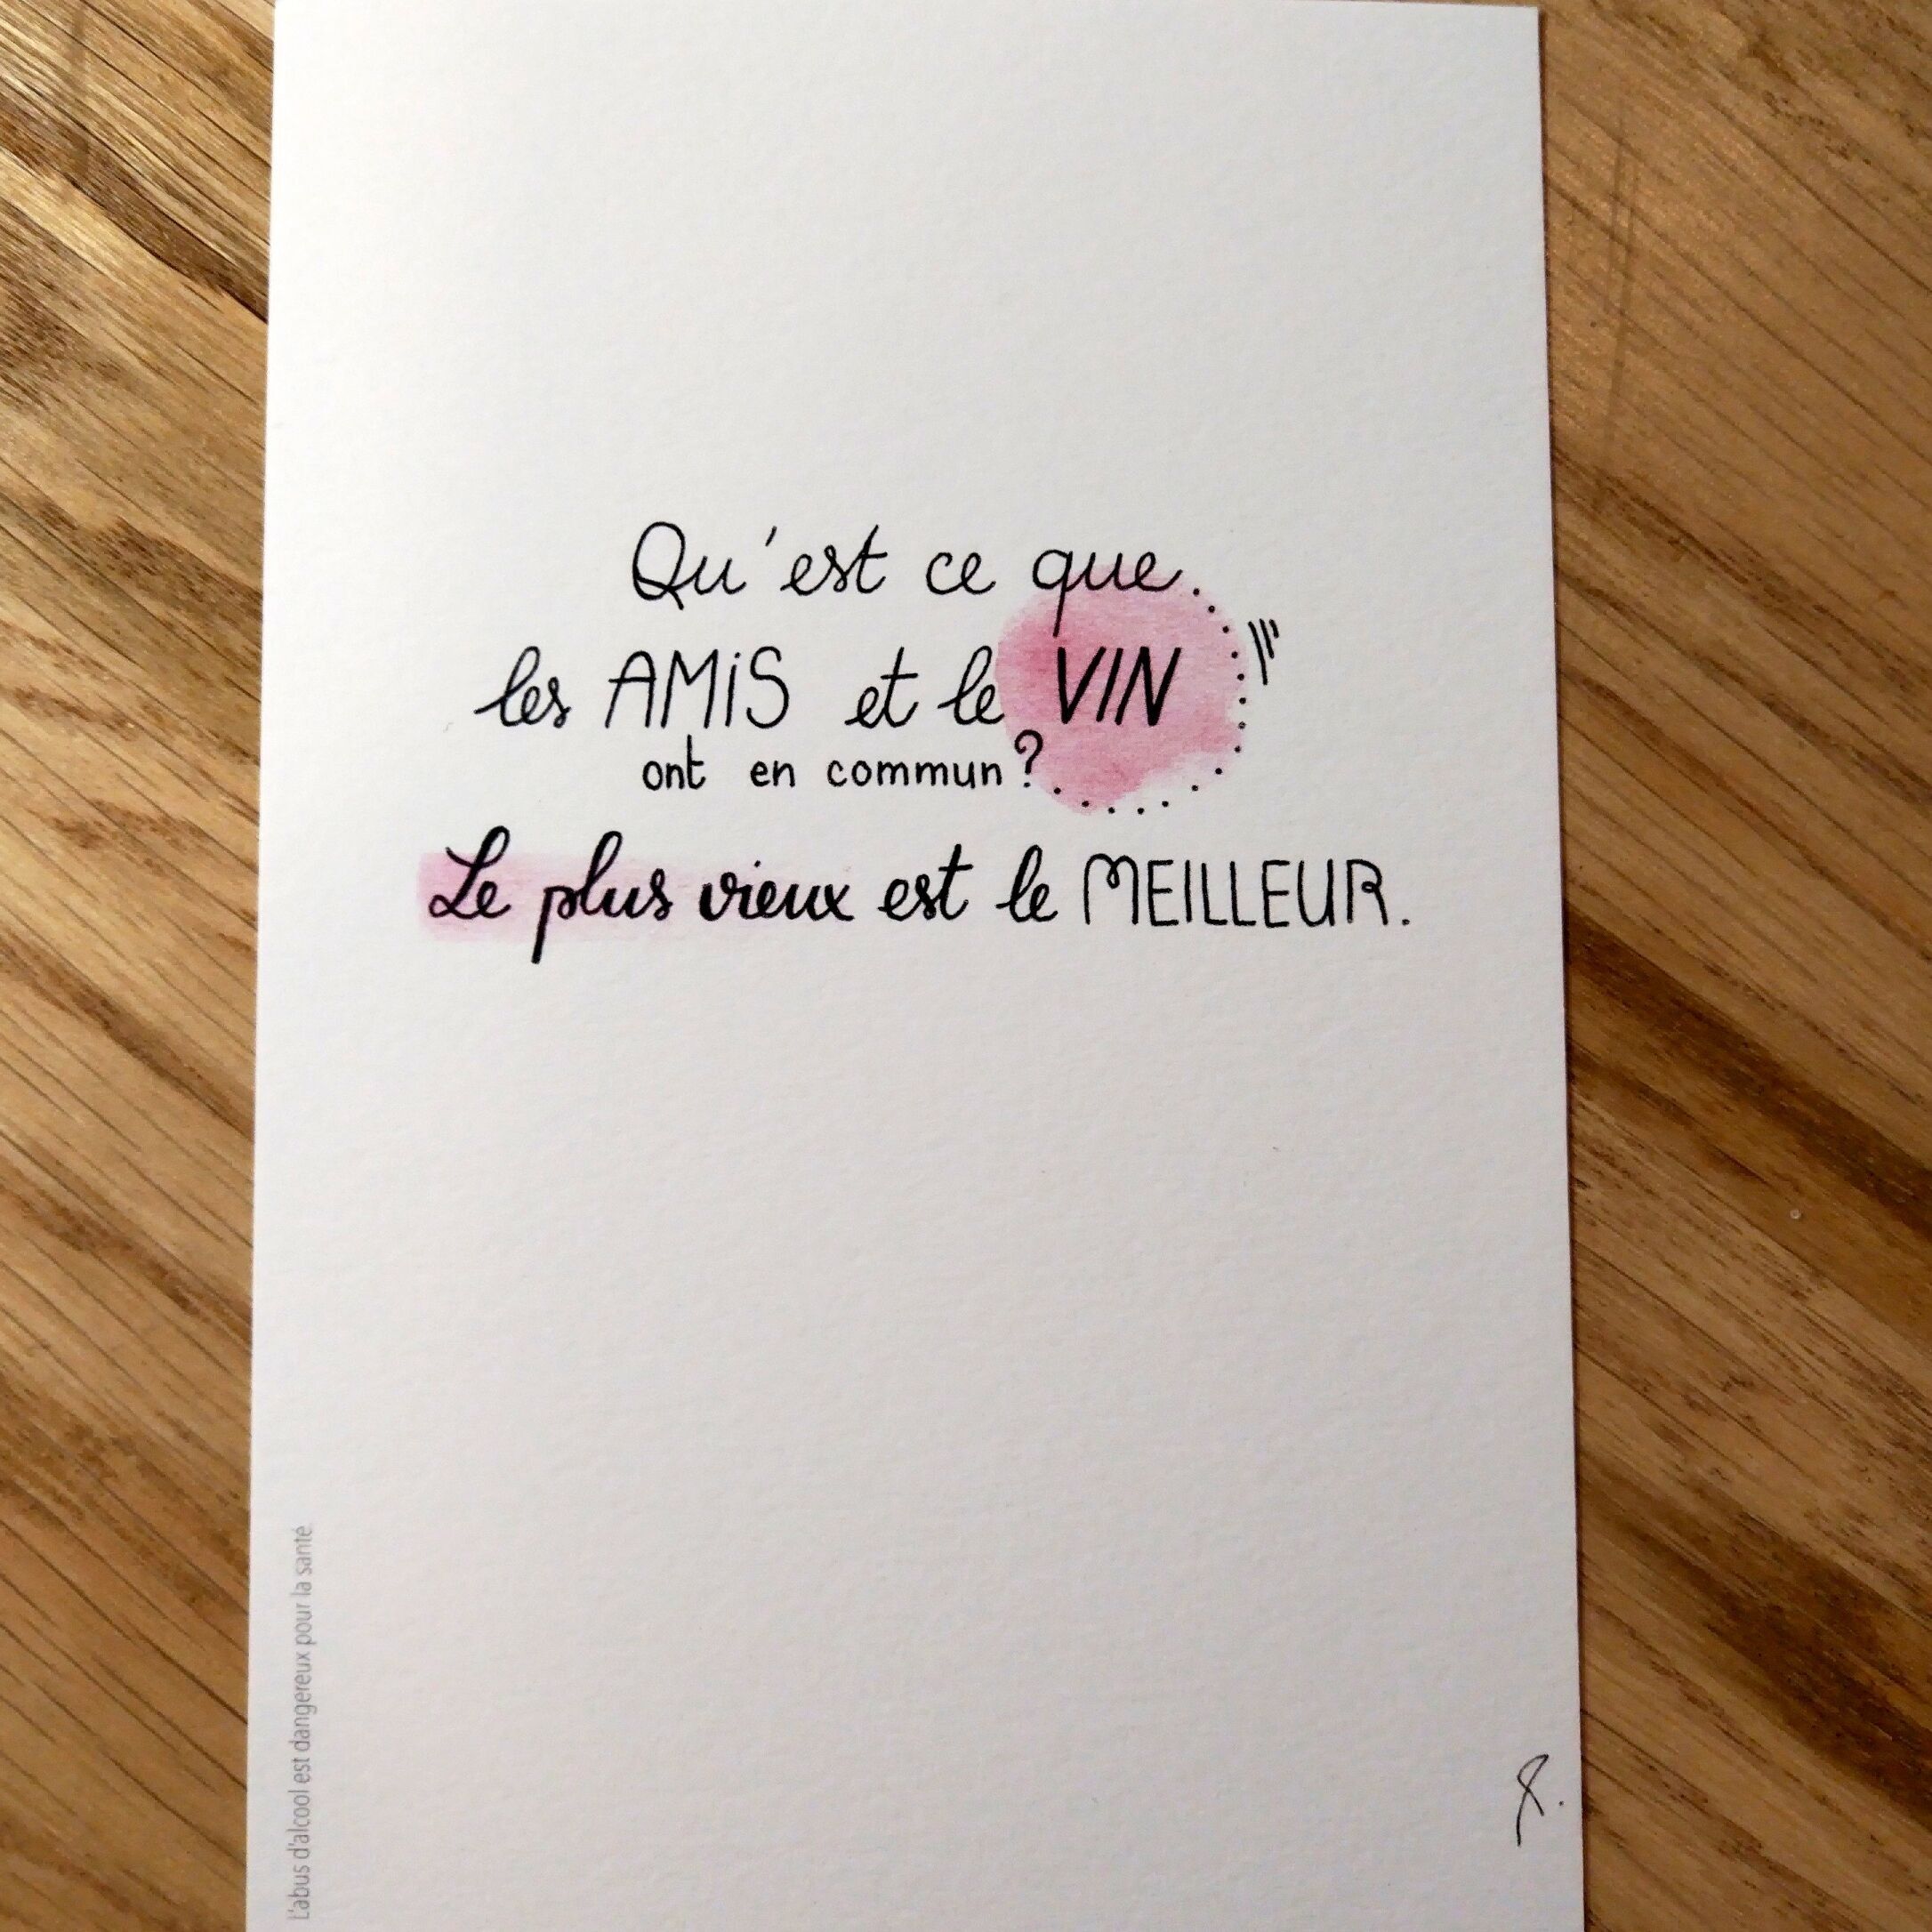 Qu'est ce que
les AMiS et le VIN
ont en commun ?
Le plus vieux est le MEILLEUR.
L'abus d'alcool est dangereux pour la santé